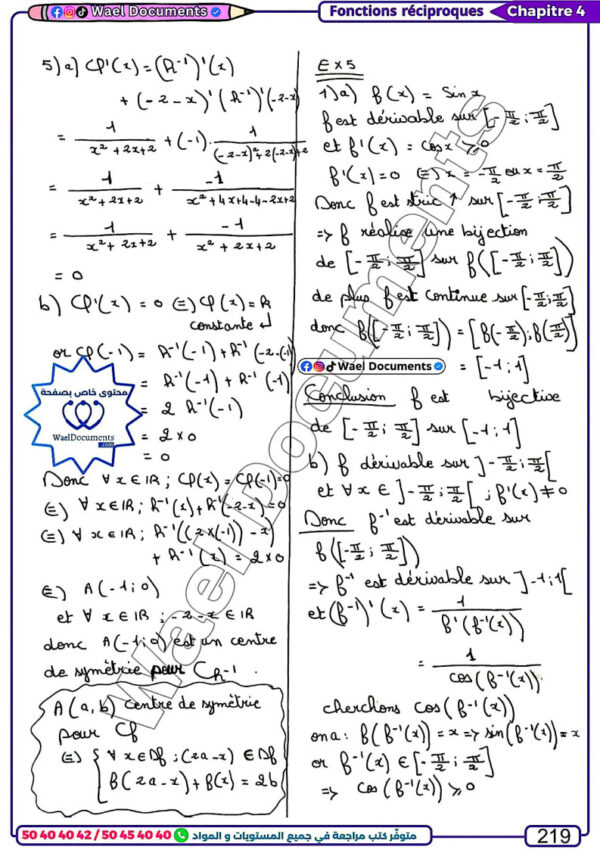 Wael Documents
Fonctions réciproques
Chapitre 4
5) a) φ'(x) = (h⁻¹)'(x)
+ (-2-x)' (h⁻¹)'(-2-x)
= 1/(x²+2x+2) + (-1) · 1/((-2-x)²+2(-2-x)+2)
= 1/(x²+2x+2) + -1/(x²+4x+4-4-2x+2)
= 1/(x²+2x+2) + -1/(x²+2x+2)
= 0
b) φ'(x) = 0 (=) φ(x) = k
constante ↲
or φ(-1) = h⁻¹(-1) + h⁻¹(-2-(-1))
= h⁻¹(-1) + h⁻¹(-1)
= 2 h⁻¹(-1)
= 2 × 0
= 0
محتوى خاص بصفحة
WaelDocuments
.com
Donc ∀ x ∈ IR ; φ(x) = φ(-1) = 0
(=) ∀ x ∈ IR ; h⁻¹(x) + h⁻¹(-2-x) = 0
(=) ∀ x ∈ IR ; h⁻¹((2×(-1)) - x)
+ h⁻¹(x) = 2×0
(=) A(-1;0)
et ∀ x ∈ IR ; -2-x ∈ IR
donc A(-1;0) est un centre
de symétrie pour C h⁻¹.
A(a,b) centre de symétrie
pour Cf
(=) { ∀ x ∈ Df ; (2a-x) ∈ Df
f(2a-x) + f(x) = 2b
Ex5
1) a) f(x) = Sin x
f est dérivable sur [-π/2 ; π/2]
et f'(x) = cos x ≥ 0
f'(x) = 0 (=) x = -π/2 ou x = π/2
Donc f est stric ↑ sur [-π/2 ; π/2]
=> f réalise une bijection
de [-π/2 ; π/2] sur f([-π/2 ; π/2])
de plus f est continue sur [-π/2 ; π/2]
donc f([-π/2 ; π/2]) = [f(-π/2) ; f(π/2)]
Wael Documents
= [-1 ; 1]
Conclusion f est bijective
de [-π/2 ; π/2] sur [-1 ; 1]
b) f dérivable sur ]-π/2 ; π/2[
et ∀ x ∈ ]-π/2 ; π/2[ ; f'(x) ≠ 0
Donc f⁻¹ est dérivable sur
f(]-π/2 ; π/2[)
=> f⁻¹ est dérivable sur ]-1 ; 1[
et (f⁻¹)'(x) = 1/(f'(f⁻¹(x)))
= 1/(cos(f⁻¹(x)))
cherchons cos(f⁻¹(x))
on a : f(f⁻¹(x)) = x => sin(f⁻¹(x)) = x
or f⁻¹(x) ∈ [-π/2 ; π/2]
=> cos(f⁻¹(x)) ≥ 0
Wael Documents
50 40 40 42 / 50 45 40 40
متوفّر كتب مراجعة في جميع المستويات و المواد
219